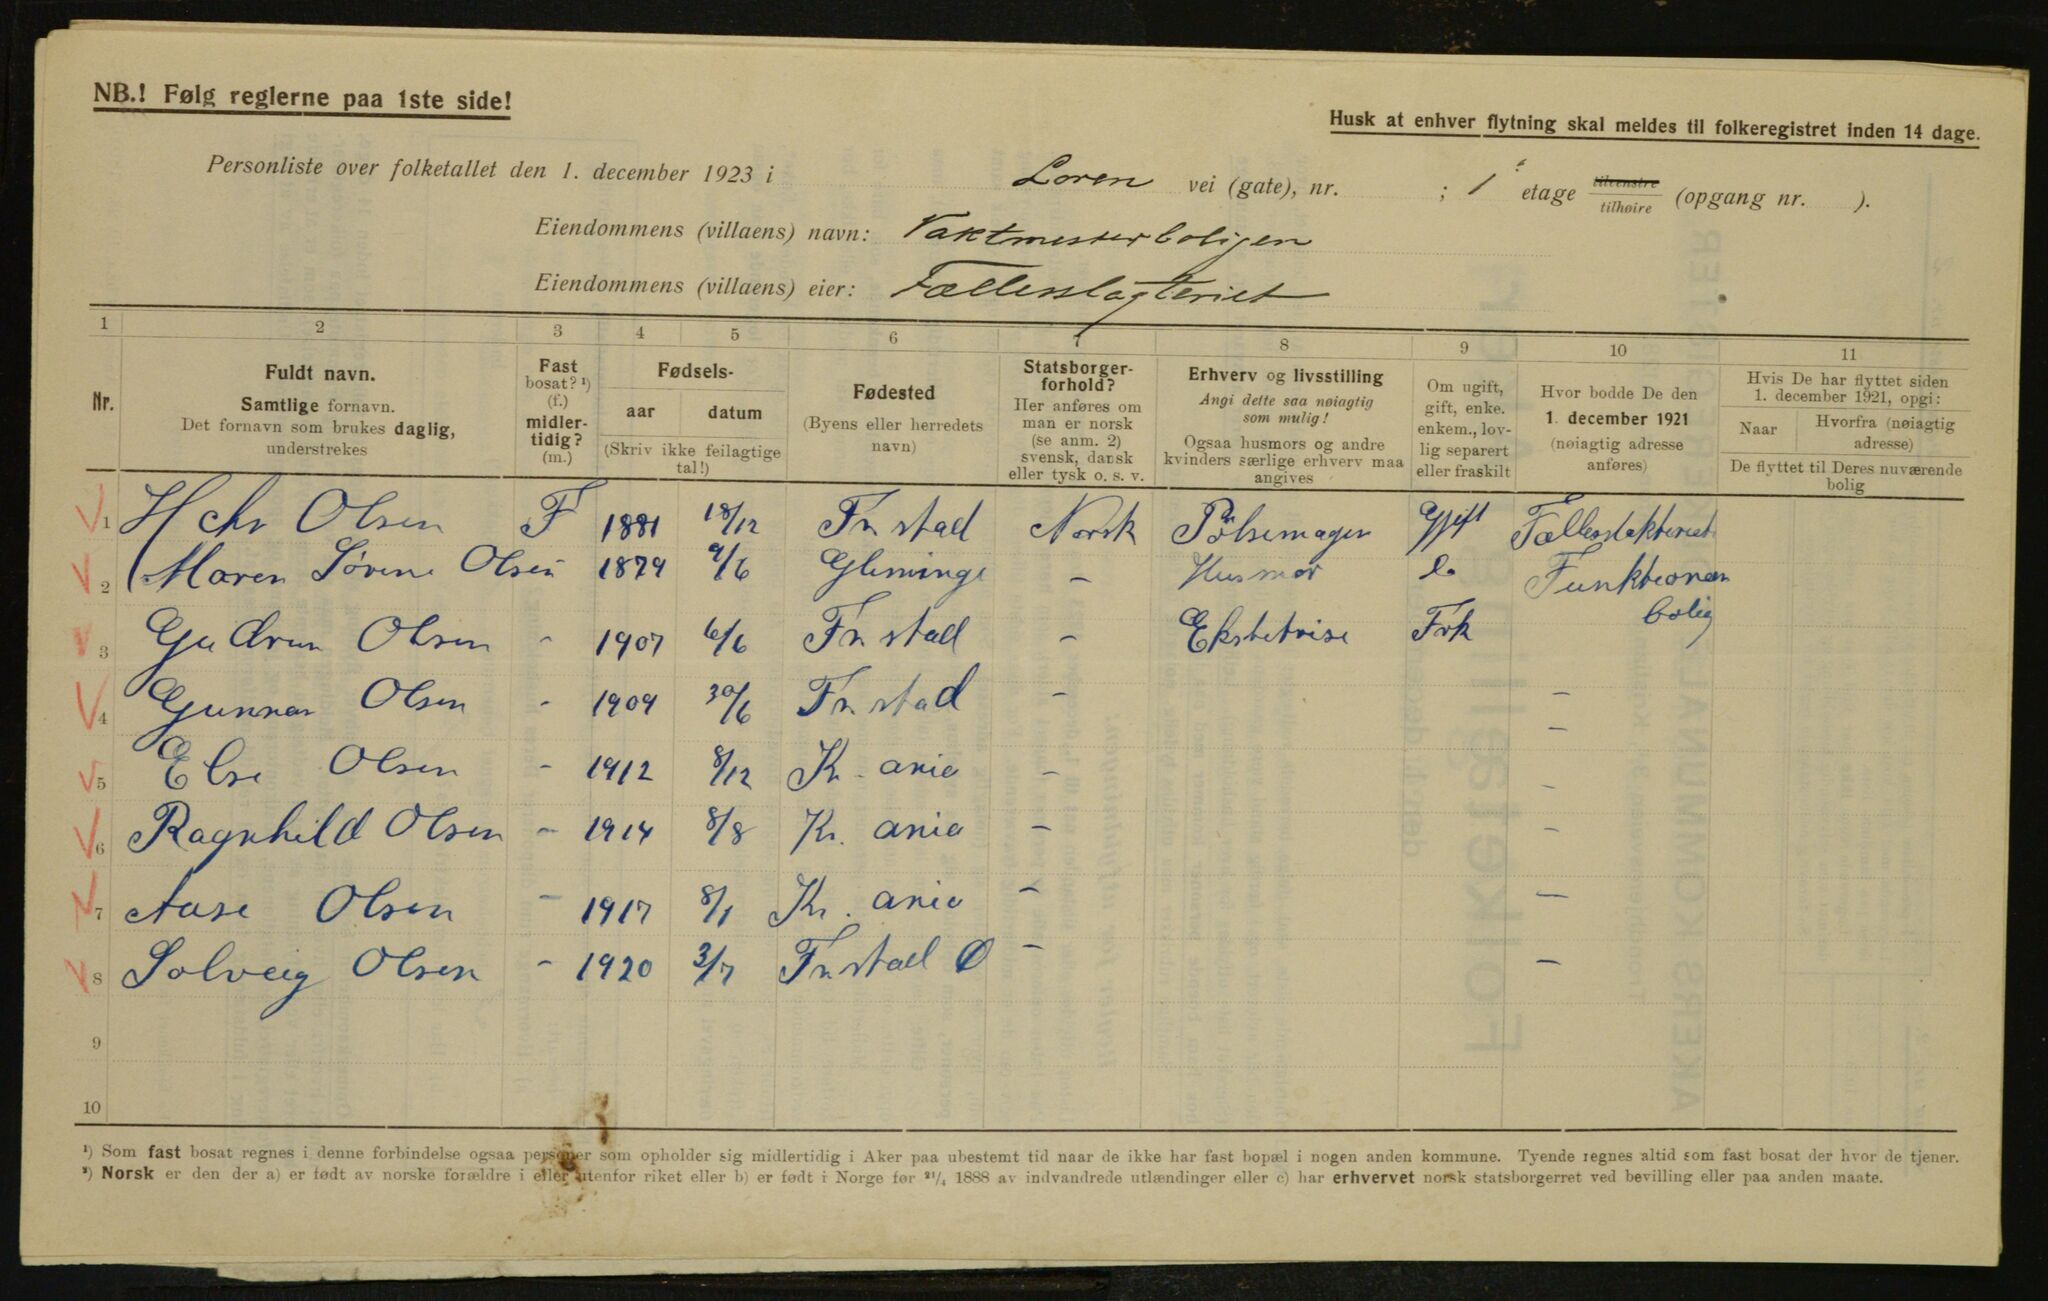 NB.! Følg reglerne paa 1ste side!
Husk at enhver flytning skal meldes til folkeregistret inden 14 dage.
Personliste over folketallet den 1. december 1923 i Loren vei (gate), nr. ; 1 etage tilvenstre tilhøire (opgang nr. ).
Eiendommens (villaens) navn: Vaktmesterboligen
Eiendommens (villaens) eier: Fællesslagteriet
1 2 3 4 5 6 7 8 9 10 11
Nr.
Fuldt navn.
Samtlige fornavn.
Det fornavn som brukes daglig,
understrekes
Fast
bosat? ¹)
(f.)
midler-
tidig?
(m.)
Fødsels-
aar datum
(Skriv ikke feilagtige
tal!)
Fødested
(Byens eller herredets
navn)
Statsborger-
forhold?
Her anføres om
man er norsk
(se anm. 2)
svensk, dansk
eller tysk o. s. v.
Erhverv og livsstilling
Angi dette saa nøiagtig
som mulig!
Ogsaa husmors og andre
kvinders særlige erhverv maa
angives
Om ugift,
gift, enke.
enkem., lov-
lig separert
eller fraskilt
Hvor bodde De den
1. december 1921
(nøiagtig adresse
anføres)
Hvis De har flyttet siden
1. december 1921, opgi:
Naar
Hvorfra (nøiagtig
adresse)
De flyttet til Deres nuværende
bolig
1 H Chr Olsen F 1881 18/12 Fr stad Norsk Pølsemager Gift Fællesslakteriet
2 Maren Sørine Olsen 1879 9/6 Gleminge - Husmor Do Funktionær
bolig
3 Gudrun Olsen - 1907 6/6 Fr stad - Frk
4 Gunnar Olsen - 1909 30/6 Fr stad - -
5 Else Olsen - 1912 8/12 Kr. ania - -
6 Ragnhild Olsen - 1914 8/8 Kr. ania - -
7 Aase Olsen - 1917 8/1 Kr. ania - -
8 Solveig Olsen - 1920 3/7 Fr stad Ø - -
9
10
¹) Som fast bosat regnes i denne forbindelse ogsaa personer som opholder sig midlertidig i Aker paa ubestemt tid naar de ikke har fast bopæl i nogen anden kommune. Tyende regnes altid som fast bosat der hvor de tjener.
²) Norsk er den der a) er født av norske forældre i eller utenfor riket eller b) er født i Norge før 21/4 1888 av indvandrede utlændinger eller c) har erhvervet norsk statsborgerret ved bevilling eller paa anden maate.